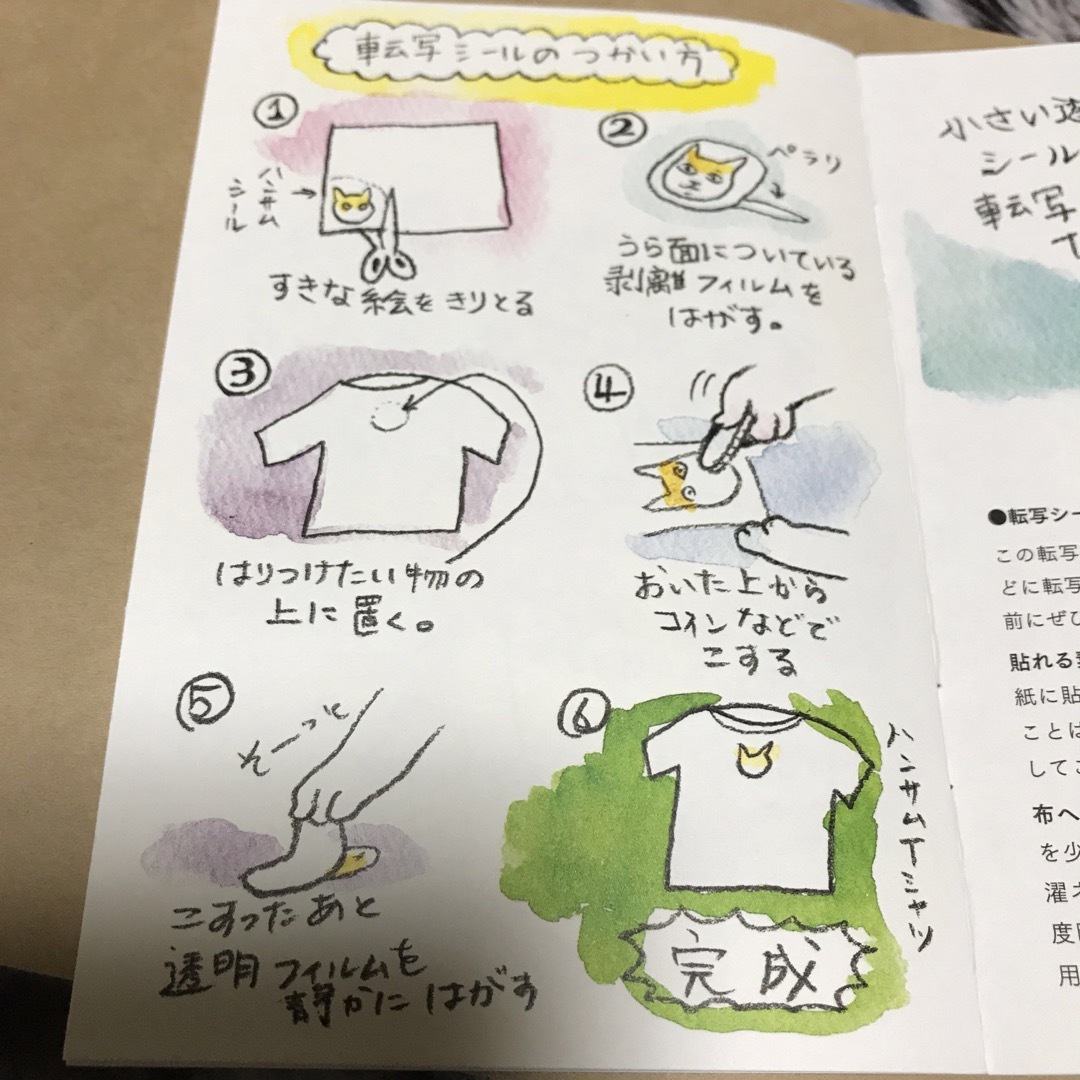 転写シールのつかい方
①
ハンサム
シール
すきな絵をきりとる
②
ペラリ
うら面についている
剥離フィルムを
はがす。
③
はりつけたい物の
上に置く。
④
おいた上から
コインなどで
こする
⑤
そーっと
こすったあと
透明フィルムを
静かにはがす
⑥
ハンサムTシャツ
完成
小さい透
シール
転写
●転写シー
この転写
どに転写
前にぜひ
貼れる
紙に貼
ことは
してこ
布へ
を少
濯
度
用